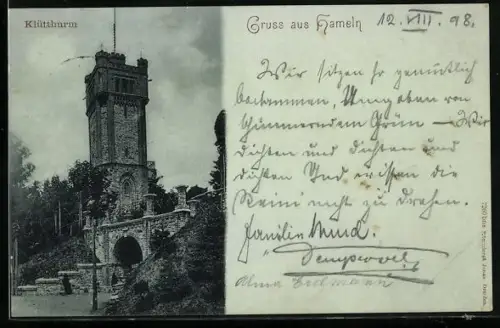 Klütthurm
Gruss aus Hameln
12. VIII. 98.
Wir sitzen so gemütlich
beisammen, Umgeben von
schimmerndem Grün — Wir
dichten und dichten und
dichten Und wissen die
Reime nicht zu drehen.
Familie
Alma Erdmann